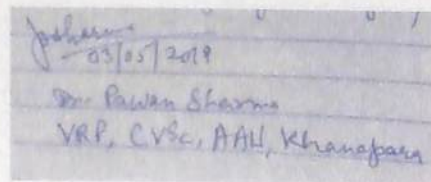 03/05/2019
Dr. Pawan Sharma
VRP, CVSc, AAU, Khanapara